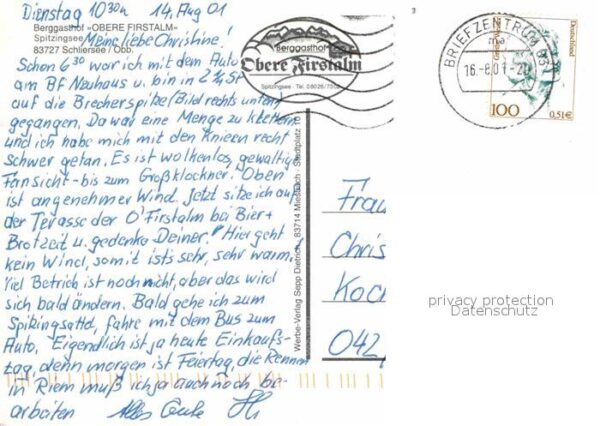 Dienstag 10³⁰h 14. Aug 01
Berggasthof »OBERE FIRSTALM«
Spitzingsee
83727 Schliersee / Obb.
Meine liebe Christine!
Schon 6³⁰ war ich mit dem Auto
am Bf Neuhaus u. bin in 2¼ St
auf die Brecherspitze (Bild rechts unten)
gegangen. Da war eine Menge zu klettern
und ich habe mich mit den Knieen recht
schwer getan. Es ist wolkenlos, gewaltige
Fernsicht - bis zum Großglockner. Oben
ist angenehmer Wind. Jetzt sitze ich auf
der Terasse der O'Firstalm bei Bier +
Brotzeit u. gedenke Deiner! Hier geht
kein Wind, somit ists sehr, sehr warm.
Viel Betrieb ist noch nicht, aber das wird
sich bald ändern. Bald gehe ich zum
Spitzingsattel, fahre mit dem Bus zum
Auto. Eigendlich ist ja heute Einkaufs-
tag, denn morgen ist Feiertag, die Rennen
in Riem muß ich ja auch noch be-
arbeiten Alles Gute
Berggasthof
Obere Firstalm
Spitzingsee · Tel. 08026/
Werbe-Verlag Sepp Dietrich, 83714 Miesbach · Stadtplatz
BRIEFZENTRUM 83
ma
16.-8.01-20
Deutschland
100
0,51€
Frau
Chris
Koch
042
privacy protection
Datenschutz